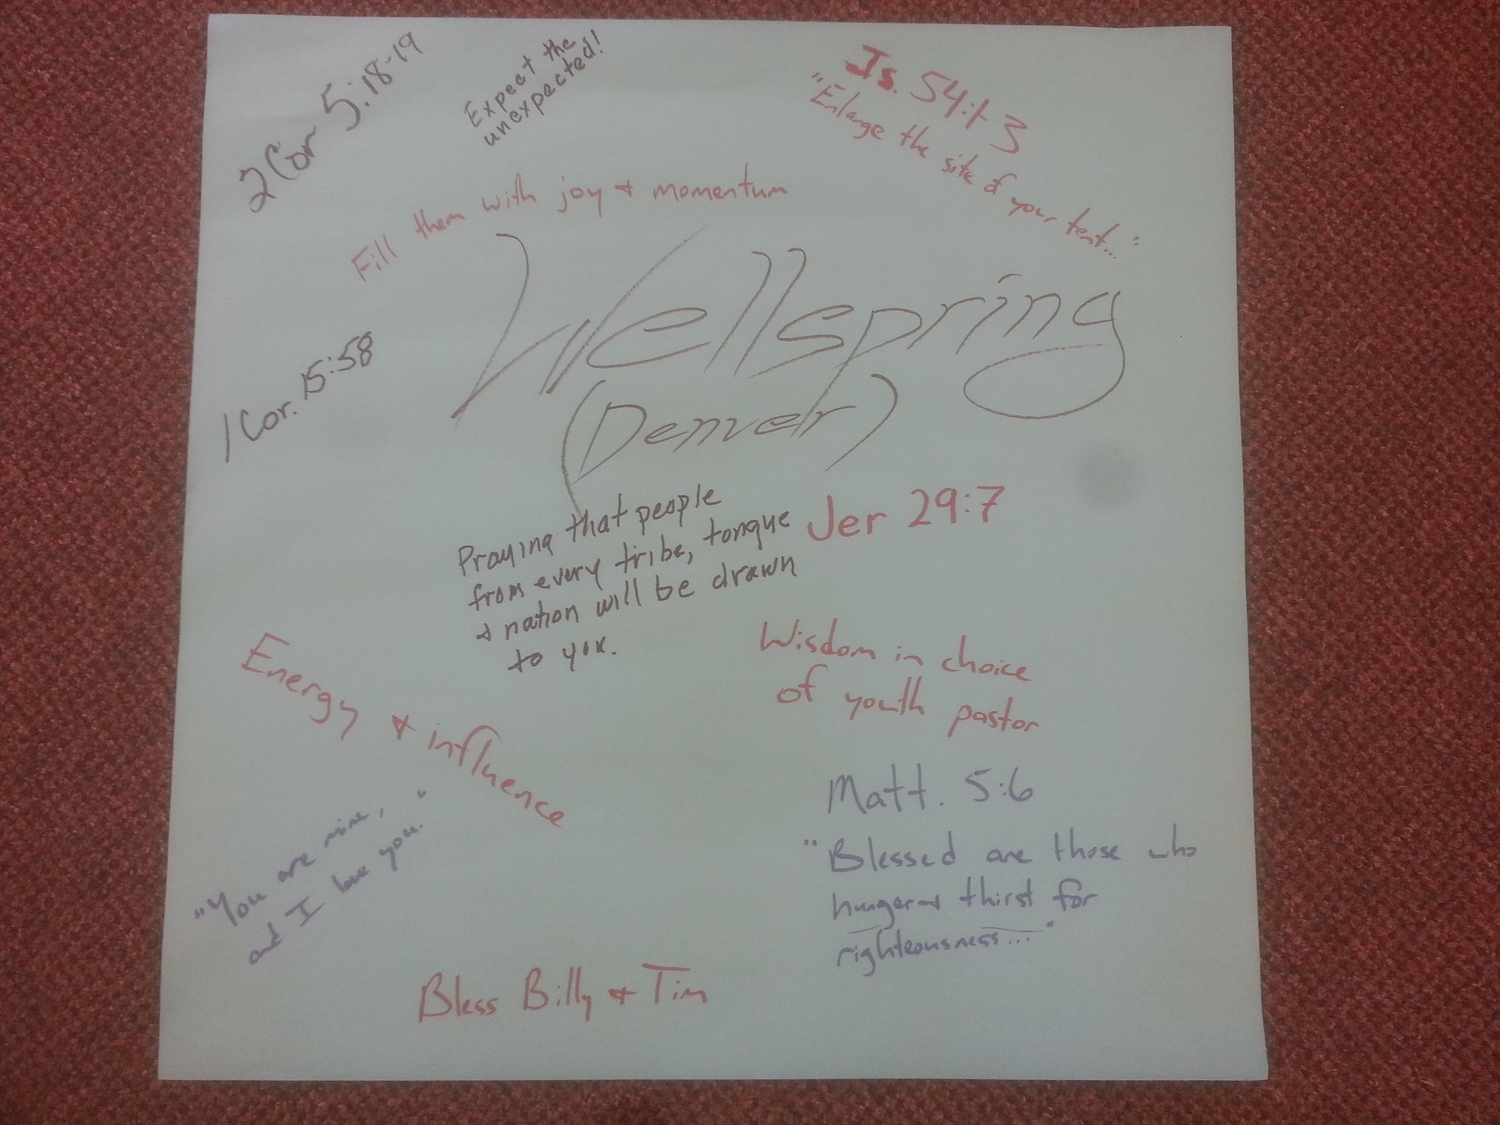 2 Cor 5:18-19
Expect the
unexpected!
Is. 54:1-3
"Enlarge the site of your tent..."
Fill them with joy + momentum
Wellspring
(Denver)
1 Cor. 15:58
Praying that people
from every tribe, tongue
+ nation will be drawn
to you.
Jer 29:7
Wisdom in choice
of youth pastor
Energy + influence
Matt. 5:6
"Blessed are those who
hunger + thirst for
righteousness..."
"You are mine,
and I love you."
Bless Billy + Tim